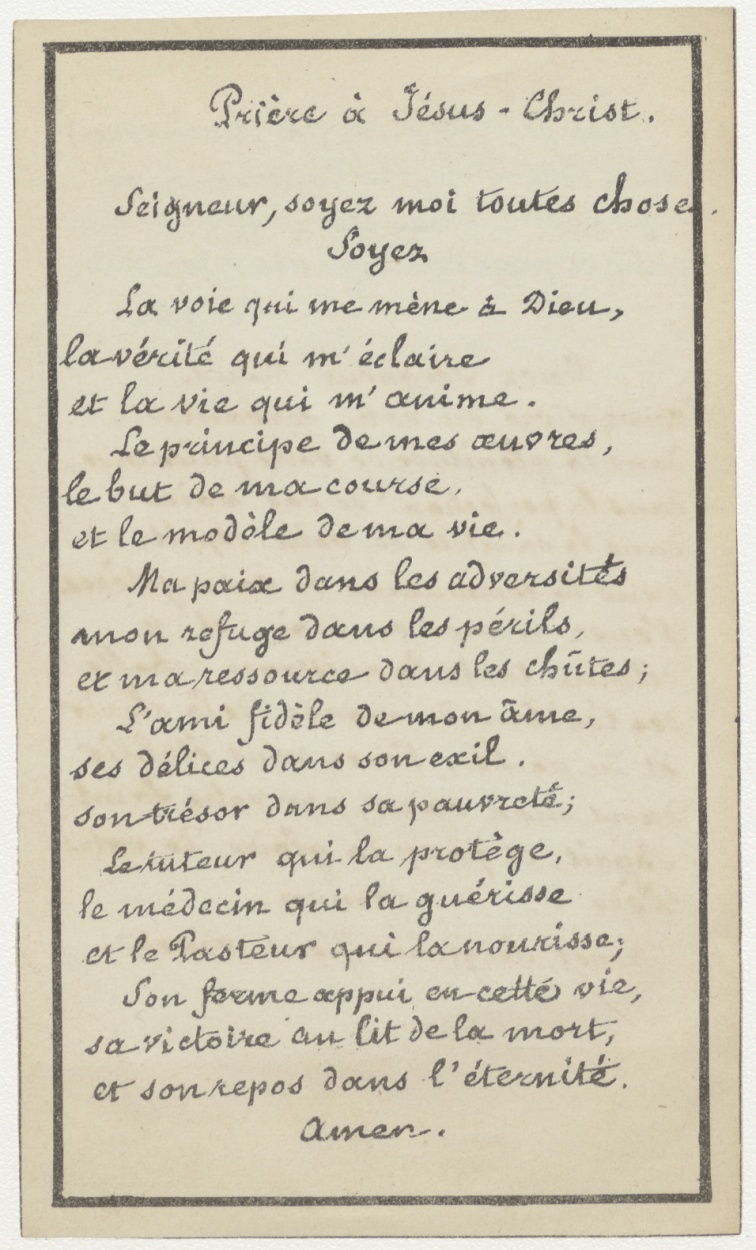 Prière à Jésus-Christ.
Seigneur, soyez moi toutes choses.
Soyez
La voie qui me mène à Dieu,
la vérité qui m'éclaire
et la vie qui m'anime.
Le principe de mes œuvres,
le but de ma course,
et le modèle de ma vie.
Ma paix dans les adversités
mon refuge dans les périls,
et ma ressource dans les chûtes;
L'ami fidèle de mon âme,
ses délices dans son exil.
son trésor dans sa pauvreté;
Le tuteur qui la protège,
le médecin qui la guérisse
et le Pasteur qui la nourisse;
Son ferme appui en cette vie,
sa victoire au lit de la mort,
et son repos dans l'éternité.
Amen.